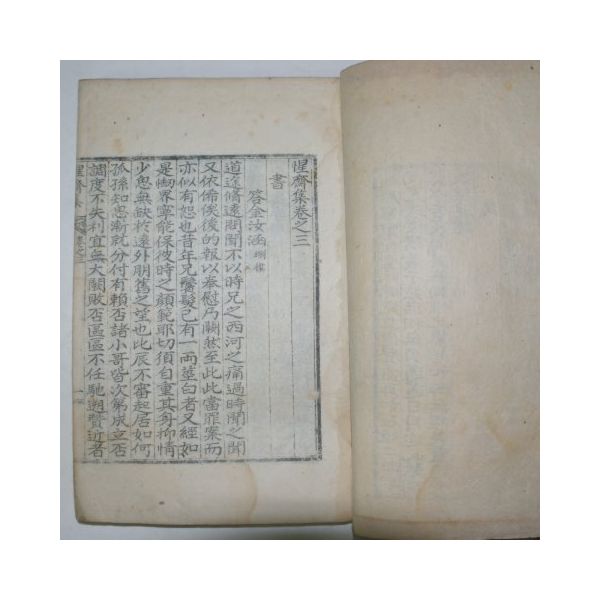 惺齋集卷之三
書
答金汝涵
道途脩遠問聞不以時兄之西河之痛過時聞之聞
又依俙俟後的報以奉慰乃闕然至此此當罪案而
亦似有恕也昔年兄鬢髮已有一兩莖白者又經如
是惱界寧能保彼時之顔範耶切須自重其身抑情
少忽無缺於遠外朋舊之望也比辰不審起居如何
孤孫知思漸就分付有賴否諸小哥皆次第成立否
調度不失利宜無大關敗否區區不任馳遡贄近者